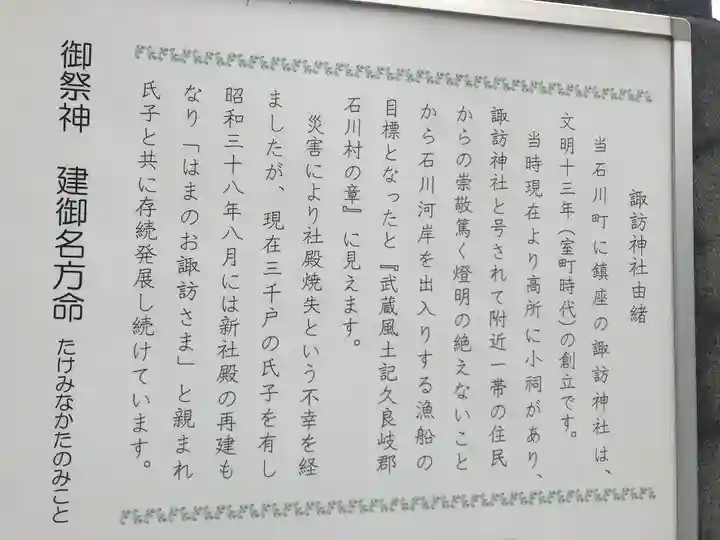 諏訪神社由緒
当石川町に鎮座の諏訪神社は、
文明十三年(室町時代)の創立です。
当時現在より高所に小祠があり、
諏訪神社と号されて附近一帯の住民
からの崇敬篤く燈明の絶えないこと
から石川河岸を出入りする漁船の
目標となったと『武蔵風土記久良岐郡
石川村の章』に見えます。
災害により社殿焼失という不幸を経
ましたが、現在三千戸の氏子を有し
昭和三十八年八月には新社殿の再建も
なり「はまのお諏訪さま」と親まれ
氏子と共に存続発展し続けています。
御祭神 建御名方命 たけみなかたのみこと